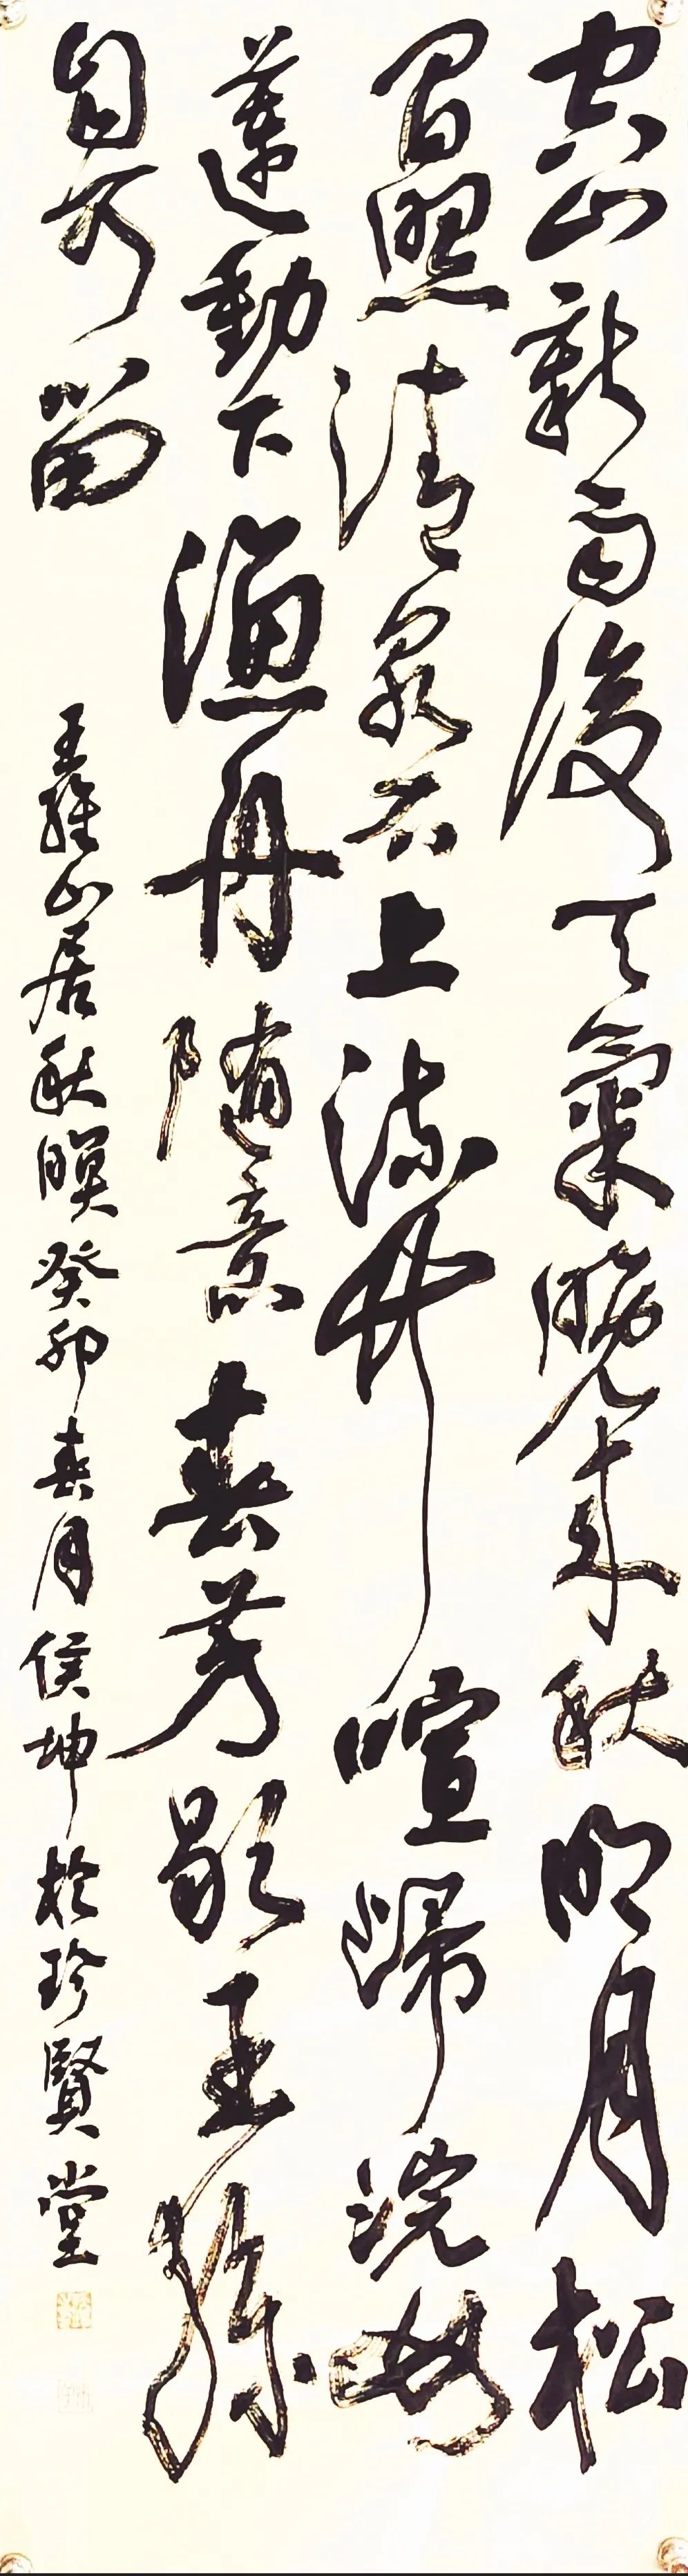 空山新雨後天氣晚來秋明月松
間照清泉石上流竹喧歸浣女
蓮動下漁舟隨意春芳歇王孫
自可留
王維山居秋暝癸卯春月侯坤於珍賢堂